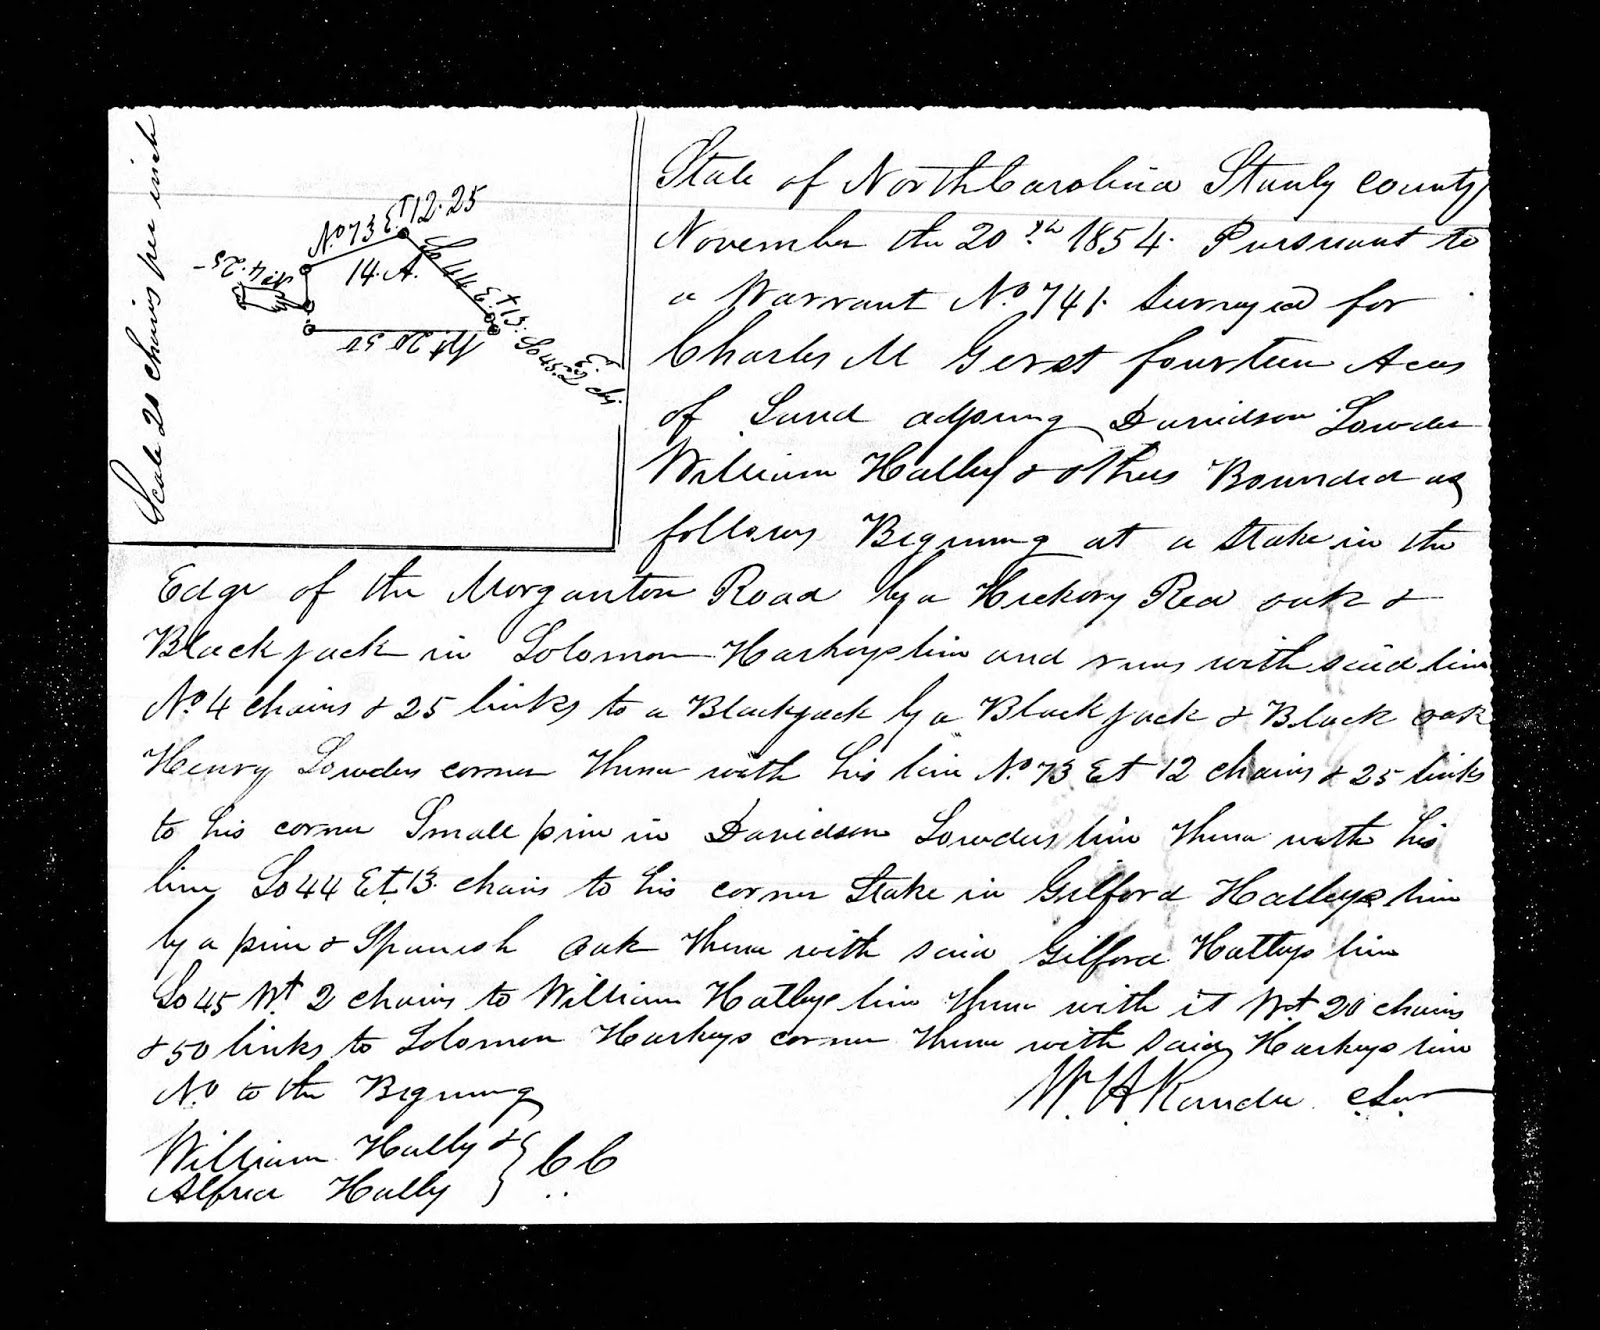 Scale 20 chains per inch
No 73 Et 12.25
14. A.
No. 4.25
So 44 Et 13.
So 45. 2 ch.
Wt 20 50
State of North Carolina Stanly county
November the 20th 1854. Pursuant to
a Warrant No 741. Surveyed for
Charles M fourteen Acres
of Land adjoining Davidson Lowder
William Hatley & others Bounded as
follows Begining at a Stake in the
Edge of the Morganton Road by a Hickory Red oak &
Black jack in Solomon Harkeys line and runs with said line
No 4 chains & 25 links to a Blackjack by a Black jack & Black oak
Henry Lowders corner thence with his line No 73 Et 12 chains & 25 links
to his corner Small pine in Davidson Lowders line thence with his
line So 44 Et. 13. chains to his corner Stake in Gilford Hatleys line
by a pine & Spanish oak thence with said Gilford Hatleys line
So 45 Wt 2 chains to William Hatleys line thence with it Wt 20 chains
& 50 links to Solomon Harkeys corner thence with said Harkeys line
No to the Begining
W. H. Randle c. Sur
William Hatley &
Alfred Hatly } CC